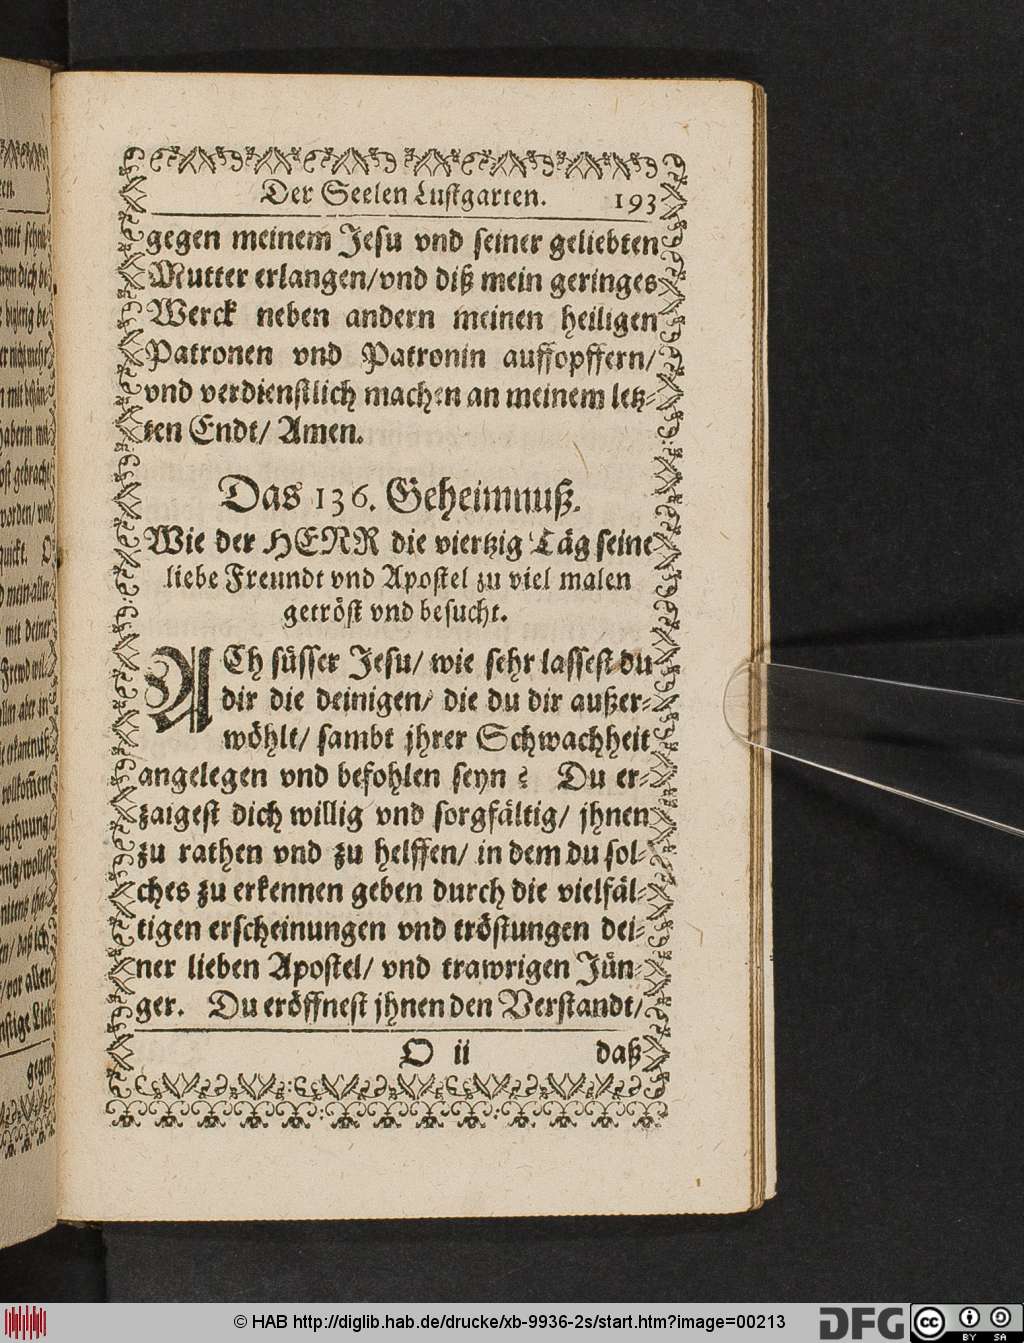 Der Seelen Lustgarten. 193
gegen meinem Jesu vnd seiner geliebten
Mutter erlangen/vnd diß mein geringes
Werck neben andern meinen heiligen
Patronen vnd Patronin auffopffern/
vnd verdienstlich machen an meinem letz-
ten Endt/ Amen.
Das 136. Geheimnuß.
Wie der HERR die viertzig Täg seine
liebe Freundt vnd Apostel zu viel malen
getröst vnd besucht.
ACh süsser Jesu/ wie sehr lassest du
dir die deinigen/ die du dir außer-
wöhlt/ sambt jhrer Schwachheit
angelegen vnd befohlen seyn? Du er-
zaigest dich willig vnd sorgfältig/ jhnen
zu rathen vnd zu helffen/ in dem du sol-
ches zu erkennen geben durch die vielfäl-
tigen erscheinungen vnd tröstungen dei-
ner lieben Apostel/ vnd trawrigen Jün-
ger. Du eröffnest jhnen den Verstandt/
O ii daß
gegen
© HAB http://diglib.hab.de/drucke/xb-9936-2s/start.htm?image=00213
DFG
cc
BY SA